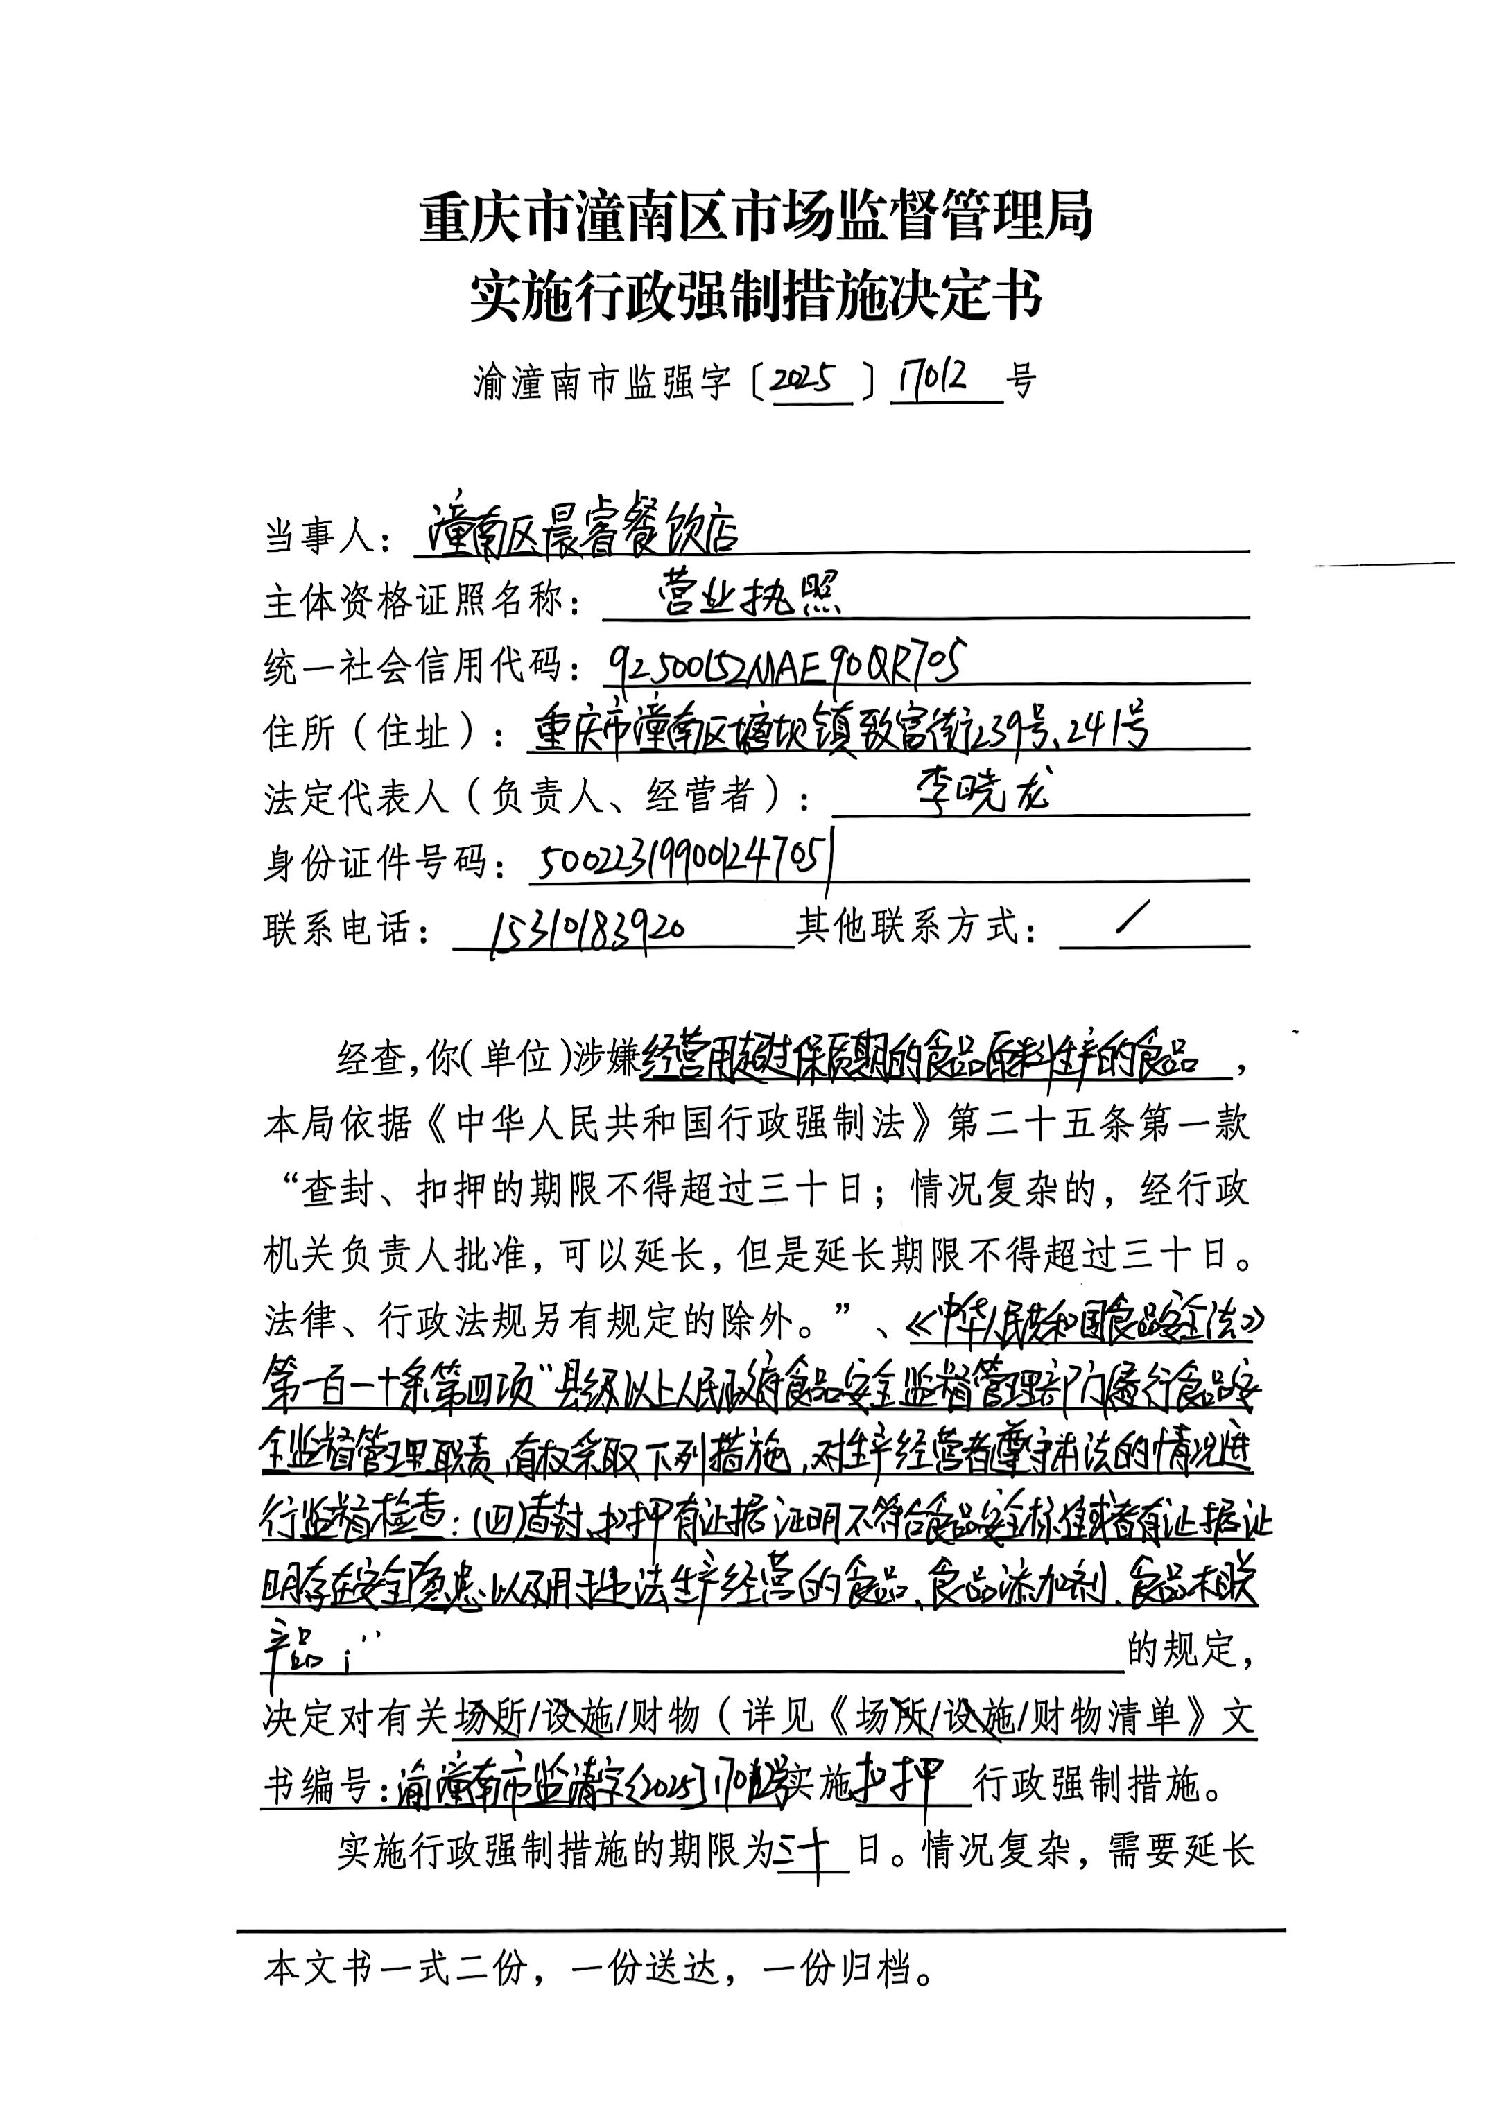 重庆市潼南区市场监督管理局
实施行政强制措施决定书
渝潼南市监强字〔2025〕17012号
当事人：潼南区晨睿餐饮店
主体资格证照名称：营业执照
统一社会信用代码：92500152MAE90QR705
住所（住址）：重庆市潼南区塘坝镇致富街239号、241号
法定代表人（负责人、经营者）：李晓龙
身份证件号码：500223199001247051
联系电话：15310183920 其他联系方式：/
经查,你(单位)涉嫌经营用超过保质期的食品原料生产的食品，
本局依据《中华人民共和国行政强制法》第二十五条第一款
“查封、扣押的期限不得超过三十日；情况复杂的，经行政
机关负责人批准，可以延长，但是延长期限不得超过三十日。
法律、行政法规另有规定的除外。”、《中华人民共和国食品安全法》
第一百一十条第四项“县级以上人民政府食品安全监督管理部门履行食品安
全监督管理职责,有权采取下列措施,对生产经营者遵守本法的情况进
行监督检查:(四)查封、扣押有证据证明不符合食品安全标准或者有证据证
明存在安全隐患以及用于违法生产经营的食品、食品添加剂、食品相关
产品；”的规定，
决定对有关场所/设施/财物（详见《场所/设施/财物清单》文
书编号:渝潼南市监清字〔2025〕17012号实施扣押行政强制措施。
实施行政强制措施的期限为三十日。情况复杂，需要延长
本文书一式二份，一份送达，一份归档。